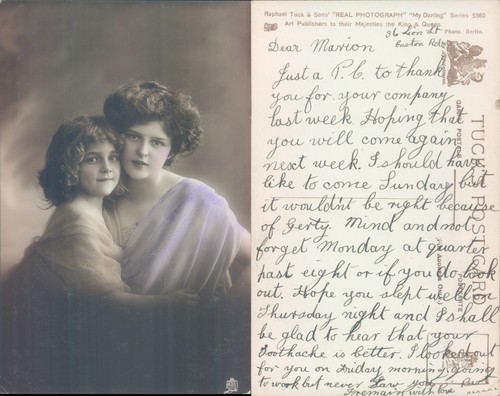 Raphael Tuck & Sons' "REAL PHOTOGRAPH" "My Darling" Series 5360
Art Publishers to their Majesties the King & Queen.
Photo. Berlin.
36 Lion St
Euston Rd
Dear Marion
Just a P.C. to thank
you for your company
last week. Hoping that
you will come again
next week. I should have
like to come Sunday but
it wouldn't be right because
of Gerty. Mind and not
forget Monday at quarter
past eight or if you do look
out. Hope you slept well on
Thursday night and I shall
be glad to hear that your
Toothache is better. I looked out
for you on Friday morning going
to work but never saw you.
I remain with love
TUCK'S POST CARD
CARTE POSTALE